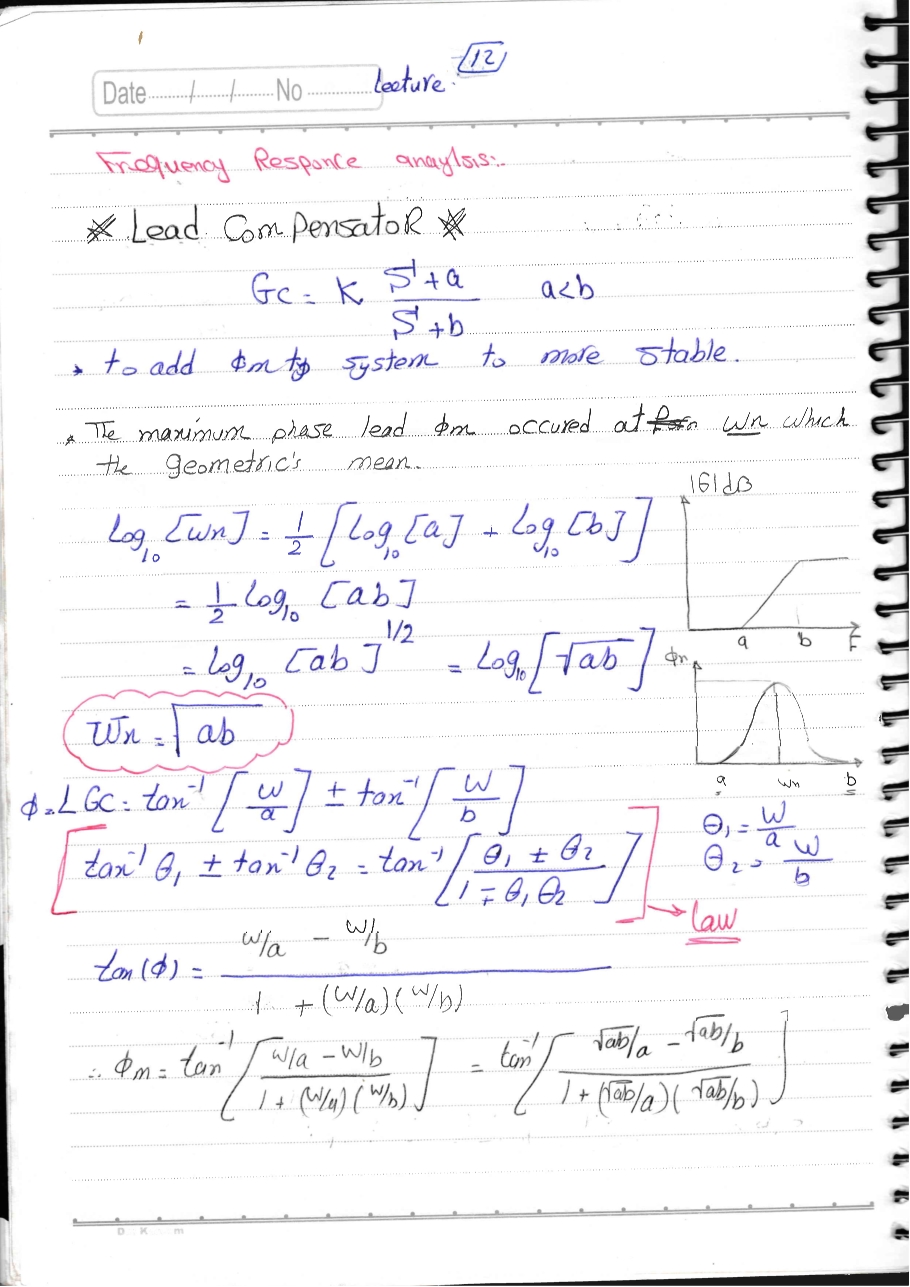 Lecture 12
Date ......../......../........ No ................
Frequency Responce anaylsis:.
* Lead CompensatoR *
Gc = K (S+a)/(S+b) a<b
to add ϕm to system to more stable.
The maximum phase lead ϕm occured at Wn which
the geometric's mean.
|G|dB
log₁₀[wn] = 1/2 [log₁₀[a] + log₁₀[b]]
a b F
= 1/2 log₁₀ [ab]
= log₁₀ [ab]^1/2 = log₁₀[√ab]
ϕm
a wn b
Wn = √ab
ϕ = ∠Gc = tan⁻¹[w/a] ± tan⁻¹[w/b]
θ₁ = w/a
θ₂ = w/b
tan⁻¹ θ₁ ± tan⁻¹ θ₂ = tan⁻¹[(θ₁ ± θ₂)/(1 ∓ θ₁θ₂)] → Law
tan(ϕ) = (w/a - w/b)/(1 + (w/a)(w/b))
∴ ϕm = tan⁻¹[(w/a - w/b)/(1 + (w/a)(w/b))] = tan⁻¹[(√ab/a - √ab/b)/(1 + (√ab/a)(√ab/b))]
D K m